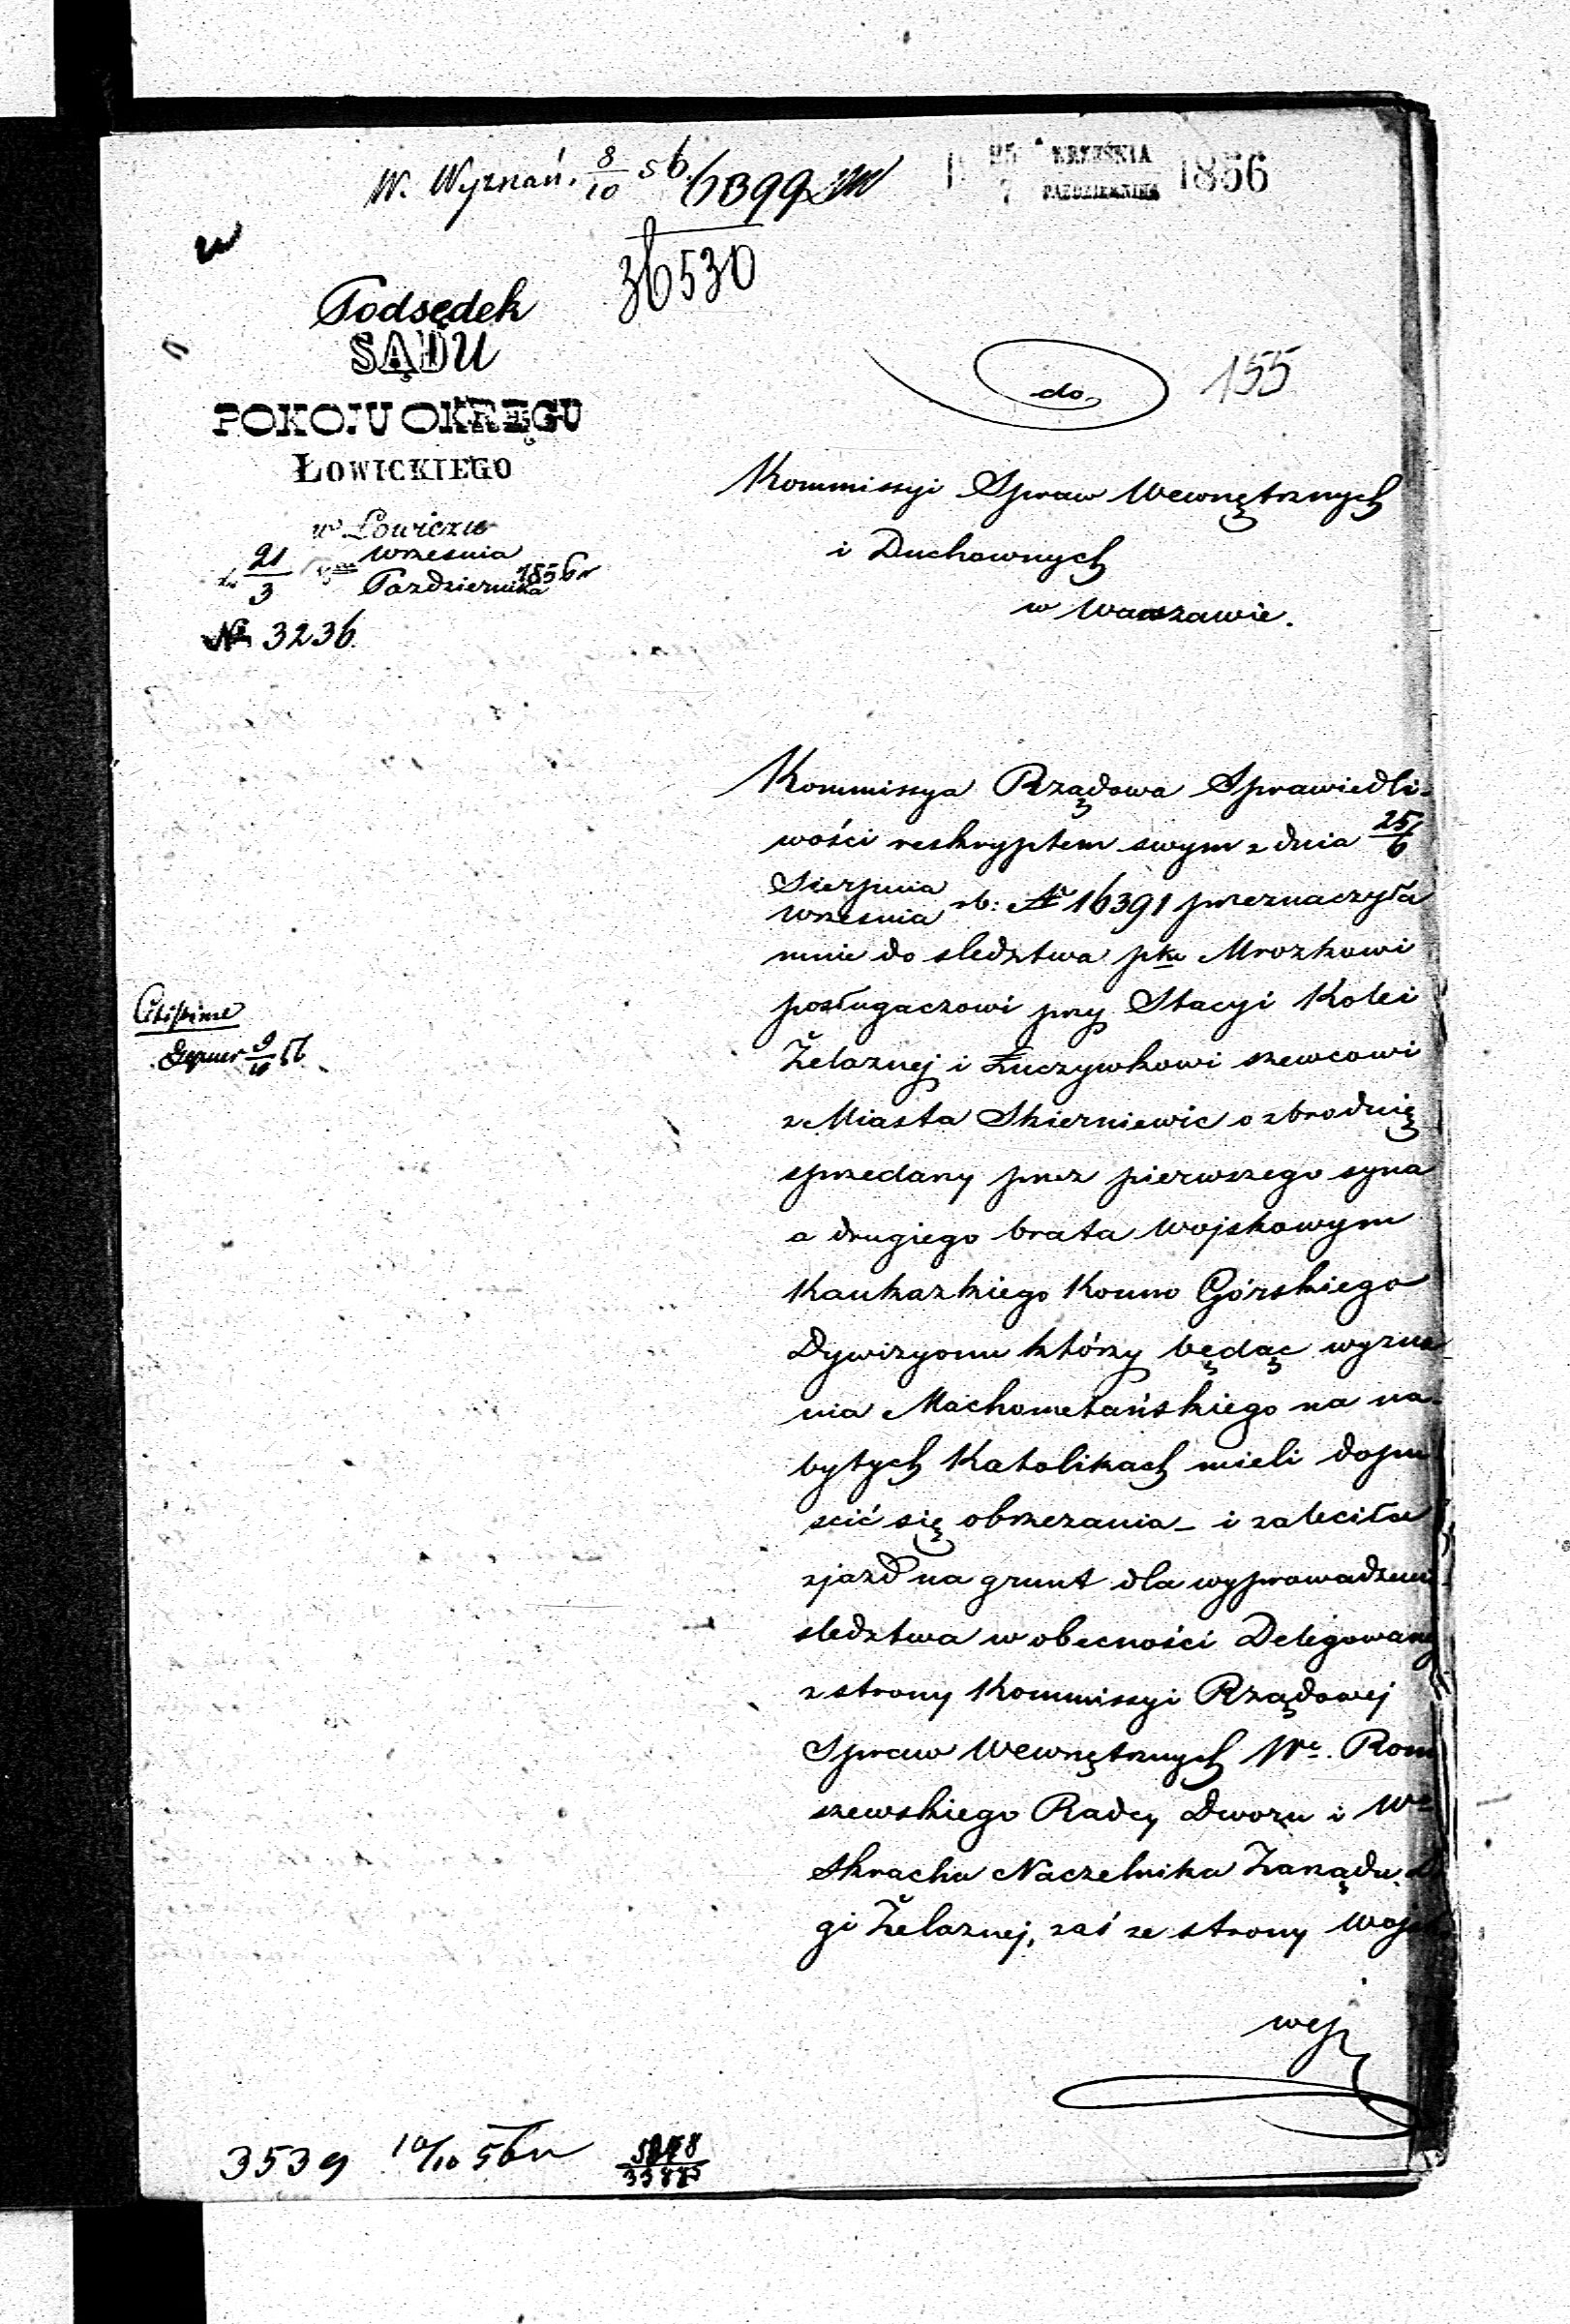 W. Wyznań. 8/10 56. 6399
25 WRZEŚNIA
7 PAŹDZIERNIKA 1856
36530
Podsędek
SĄDU
POKOJU OKRĘGU
ŁOWICKIEGO
w Łowiczu
21/3 Wrzesnia Pazdziernika 1856 r
№ 3236.
do
155
Kommissyi Spraw Wewnętrznych
i Duchownych
w Warszawie.
Kommissya Rządowa Sprawiedli-
wości reskryptem swym z dnia 25/6
Sierpnia
Wrzesnia rb: № 16391 przeznaczyła
mnie do sledztwa pko Mrozkowi
posługaczowi przy Stacyi Kolei
Żelaznej i Łuczywkowi szewcowi
z Miasta Skierniewic o zbrodnię
sprzedany przez pierwszego syna
a drugiego brata Wojskowym
Kaukazkiego Konno Górskiego
Dywizyonu który będąc wyzna-
nia Machometańskiego na na-
bytych Katolikach mieli dopu
scić się obrzezania – i zaleciła
zjazd na grunt dla wyprowadzenia
sledztwa w obecności Delegowany
z strony Kommissyi Rządowej
Spraw Wewnętrznych Wo. Rom
szewskiego Radcy Dworu i Wo
Skracha Naczelnika Zarządu
gi Żelaznej, zaś ze strony Wojs
wej
Citissime
9/10 56
3539 10/10 56